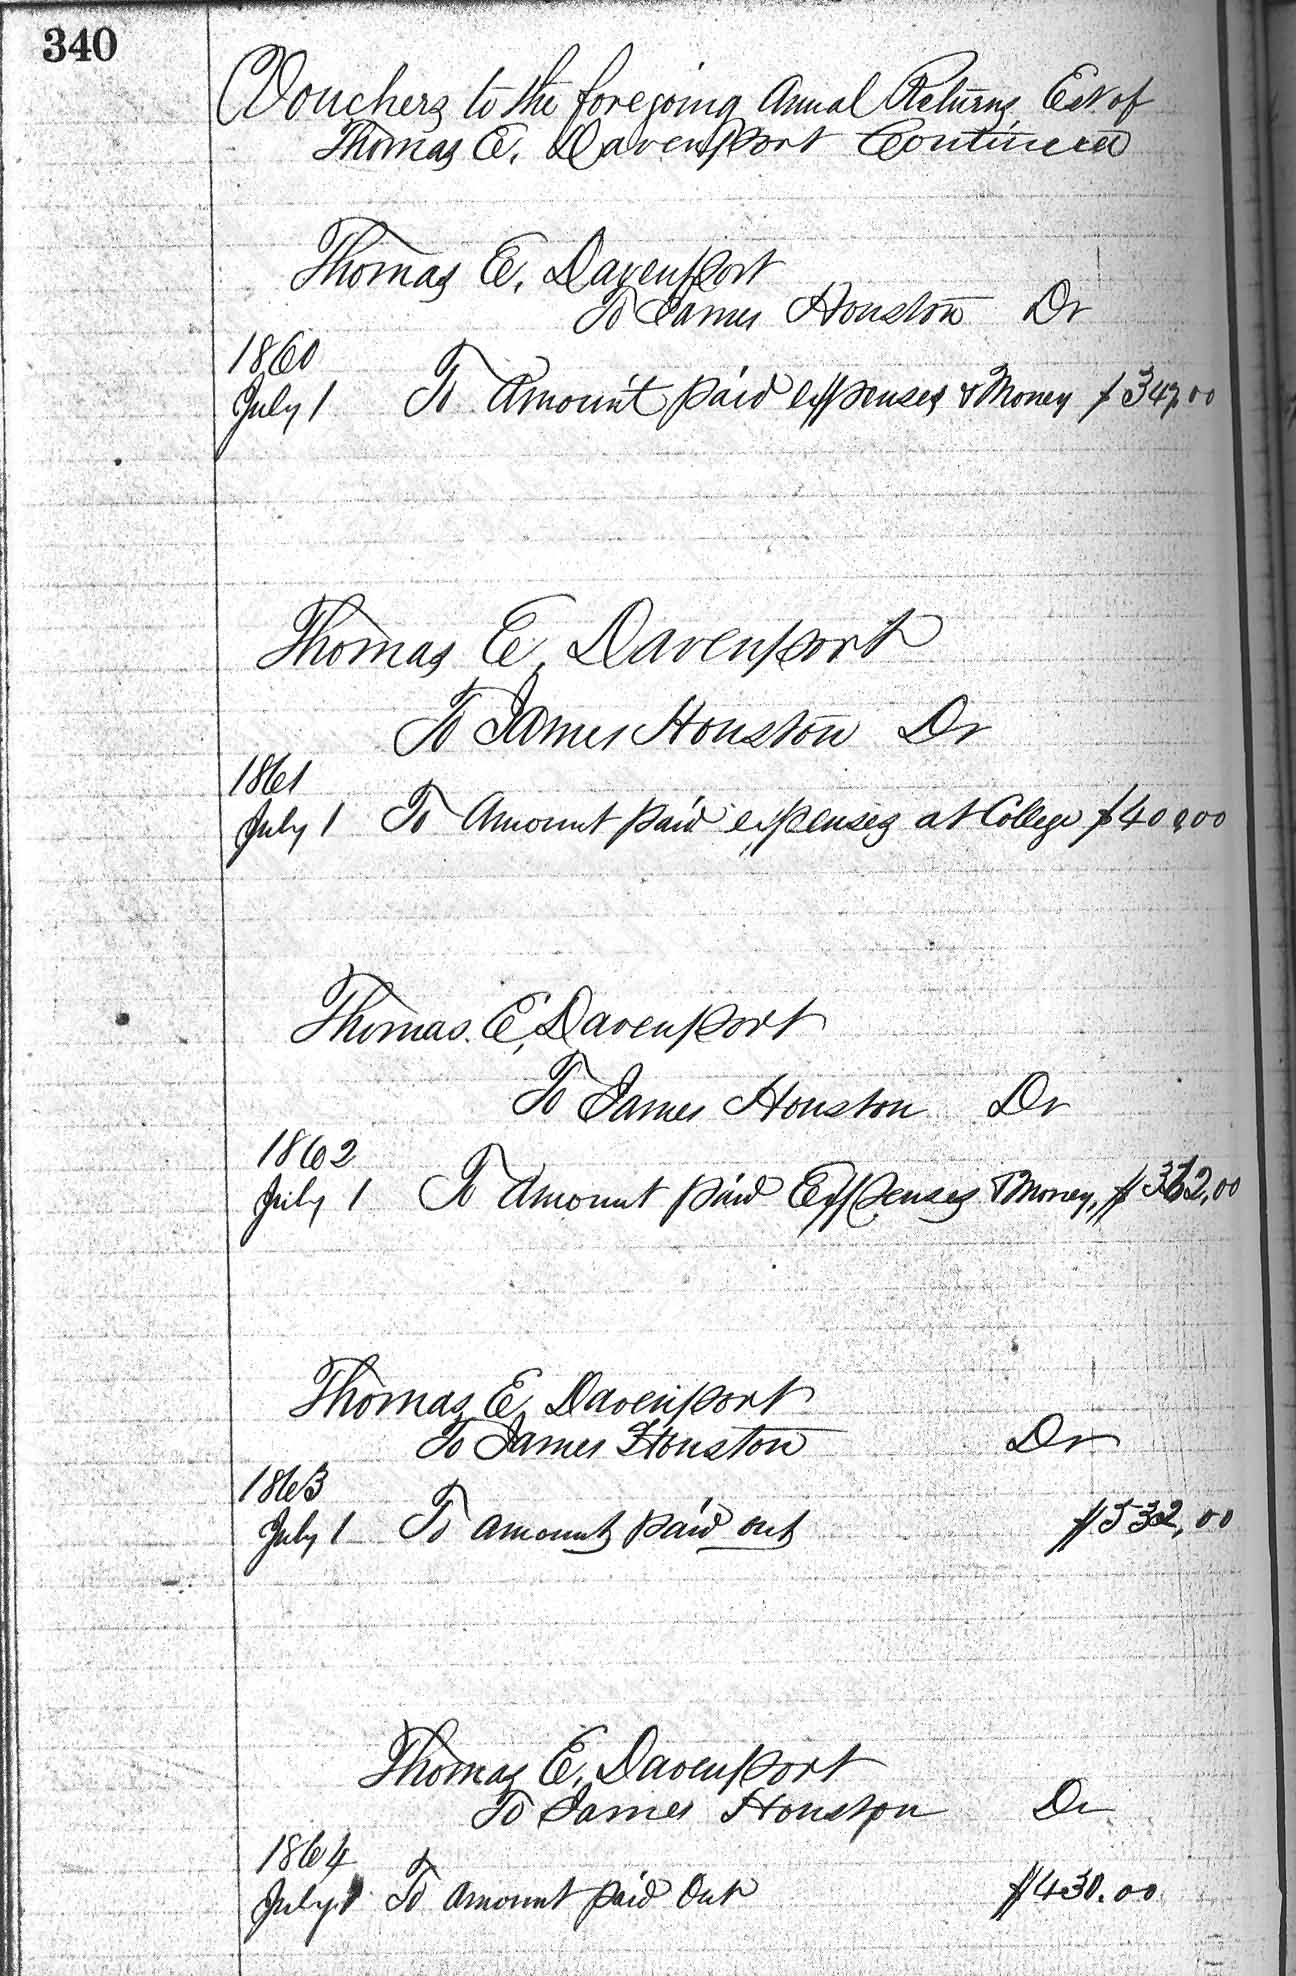 340
Vouchers to the foregoing Annual Returns, Est. of
Thomas E. Davenport Continued
Thomas E. Davenport
To James Houston Dr
1860
July 1 To Amount paid expenses & Money $ 347,00
Thomas E, Davenport
To James Houston Dr
1861
July 1 To Amount paid expenses at College $400,00
Thomas. E, Davenport
To James Houston Dr
1862
July 1 To Amount paid Expenses & Money, $ 362,00
Thomas E, Davenport
To James Houston Dr
1863
July 1 To amounts paid out $532,00
Thomas E, Davenport
To James Houston Dr
1864
July 1 To amount paid Out $430.00